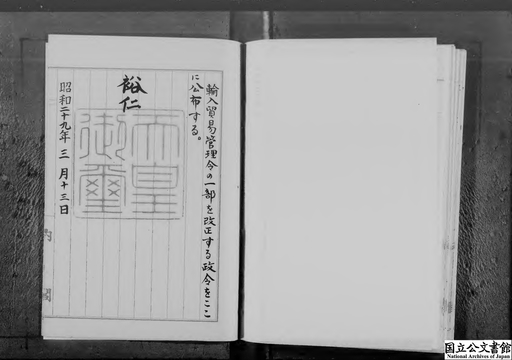 輸入貿易管理令の一部を改正する政令をここ
に公布する。
裕仁
天皇
御璽
昭和二十九年三月十三日
内閣
国立公文書館
National Archives of Japan